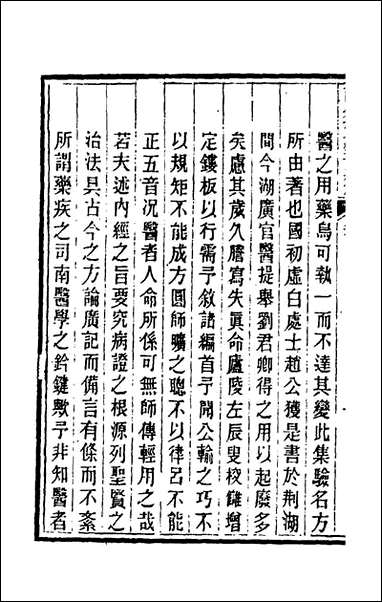 醫之用藥烏可執一而不達其變此集驗名方
所由著也國初虛白處士趙公獲是書於荆湖
間今湖廣官醫提舉劉君卿得之用以起廢多
矣慮其歲久謄寫失眞命廬陵左辰叟校讎增
定鏤板以行需予敘諸編首予聞公輸之巧不
以規矩不能成方圓師曠之聰不以律呂不能
正五音況醫者人命所係可無師傳輕用之哉
若夫述內經之旨要究病證之根源列聖賢之
治法具古今之方論廣記而備言有條而不紊
所謂藥疾之司南醫學之鈐鍵歟予非知醫者